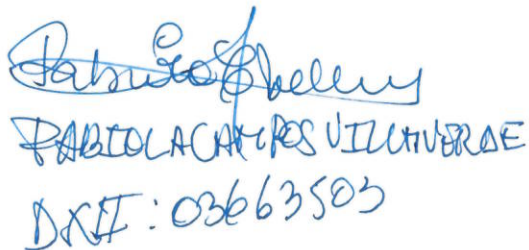 FABIOLA CAMPOS VILLAVERDE
DNI: 03663503